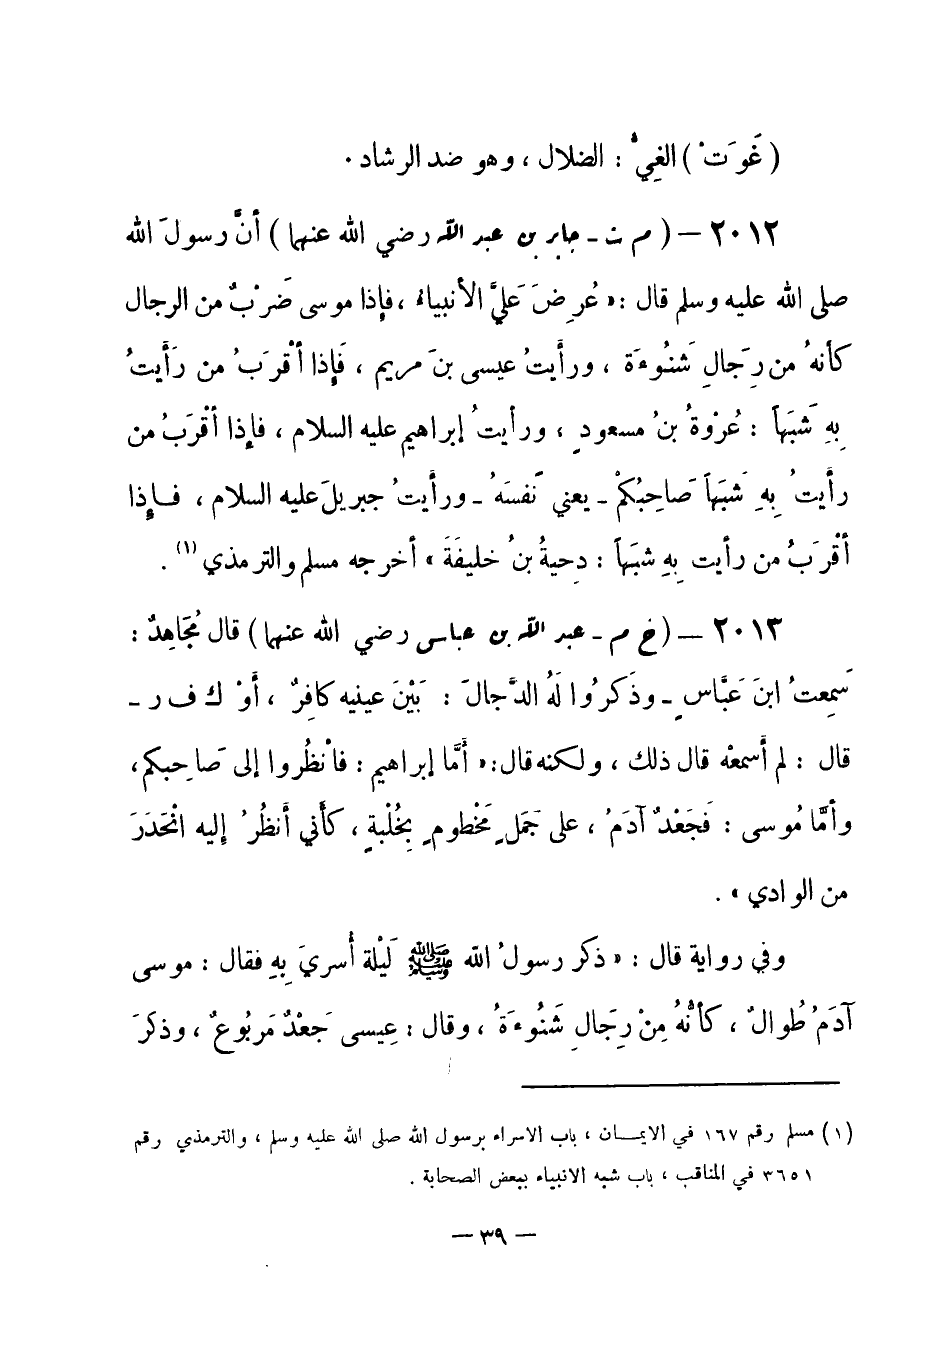 ( غَوَتْ ) الغِيُّ : الضلال ، وهو ضد الرشاد .
٢٠١٢ – ( م ت ـ جابر بن عبد الله رضي الله عنهما ) أنَّ رسولَ الله
صلى الله عليه وسلم قال : « عُرِضَ عَليَّ الأنبياءُ ، فإذا موسى ضَرْبٌ من الرجال
كأنهُ من رِجَالِ شَنُوءَة ، ورأَيتُ عيسى بنَ مريم ، فَإِذا أقْرَبُ من رَأَيتُ
بِهِ شَبَهاً : عُرْوةُ بنُ مسعودٍ ، ورأيتُ إبراهيم عليه السلام ، فإذا أقْرَبُ من
رأَيتُ بِهِ شَبَهاً صَاحِبُكمْ ـ يعني نَفْسَهُ ـ ورأَيتُ جبريلَ عليه السلام ، فإِذا
أقْرَبُ من رأيت بِهِ شَبَهاً : دِحيةُ بنُ خليفَةَ » أخرجه مسلم والترمذي (١) .
٢٠١٣ – ( خ م ـ عبد الله بن عباس رضي الله عنهما ) قال مُجَاهِدٌ :
سَمِعتُ ابنَ عَبَّاسٍ ـ وذَكرُوا لَهُ الدَّجالَ : بَيْنَ عينيه كافِرٌ ، أَوْ ك ف ر ـ
قال : لم أَسمعْه قال ذلك ، ولكنه قال : « أمَّا إبراهيم : فانْظُروا إلى صَاحِبكم ،
وأمَّا مُوسى : فَجَعْدٌ آدَمُ ، على جَمَلٍ مَخْطومٍ بِخُلْبةٍ ، كأَني أَنظُرُ إليه انْحَدَرَ
من الوادي » .
وفي رواية قال : « ذكر رسولُ الله ﷺ لَيْلة أُسريَ بِهِ فقال : موسى
آدَمُ طُوالٌ ، كأنَّهُ مِنْ رِجَالِ شَنُوءَةُ ، وقال : عِيسى جَعْدٌ مَربُوعٌ ، وذكرَ
(١) مسلم رقم ١٦٧ في الايمــان ، باب الاسراء برسول الله صلى الله عليه وسلم ، والترمذي رقم
٣٦٥١ في المناقب ، باب شبه الانبياء ببعض الصحابة .
– ٣٩ –